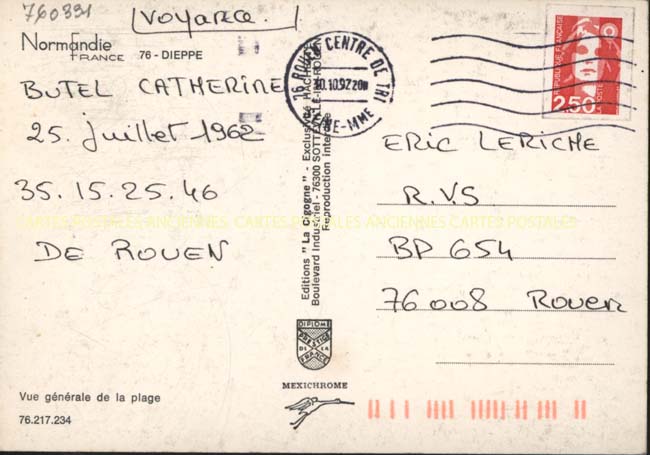 760331
(Voyance.)
Normandie
FRANCE 76 - DIEPPE
BUTEL CATHERINE
25 Juillet 1962
35.15.25.46
DE ROUEN
Vue générale de la plage
76.217.234
Editions "La Cigogne" - Exclusivité HACHETTE
Boulevard Industriel - 76300 SOTTEVILLE-lès-ROUEN
Reproduction interdite
DIPLOME
PRESTIGE
DE LA
FRANCE
MEXICHROME
76 ROUEN CENTRE DE TRI
10.10.92 20H
SEINE-MME
REPUBLIQUE FRANÇAISE
2,50
ERIC LERICHE
R.V.S
BP 654
76008 Rouen
CARTES POSTALES ANCIENNES CARTES POSTALES ANCIENNES CARTES POSTALES